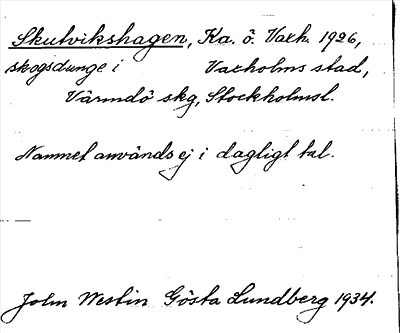 Skutvikshagen, Ka. ö. Vaxh. 1926,
skogsdunge i Vaxholms stad,
Värmdö skg, Stockholmsl.
Namnet användes ej i dagligt tal.
John Westin Gösta Lundberg 1934.